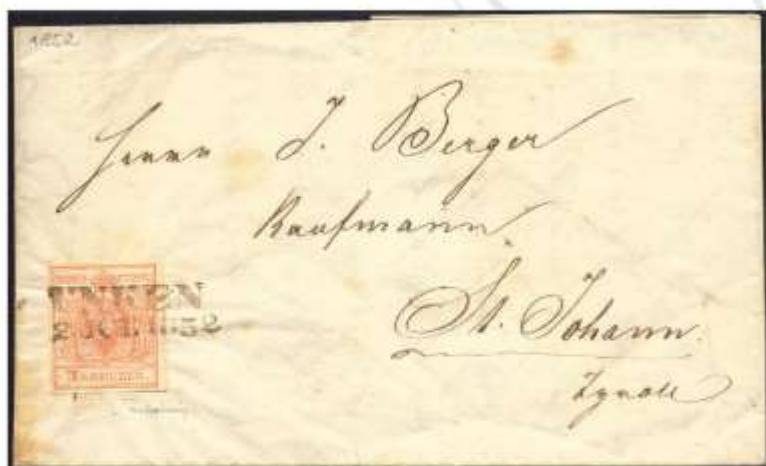 1852
Herrn J. Berger
Kaufmann
St. Johann
UNKEN
2 JUL 1852
3 KREUZER